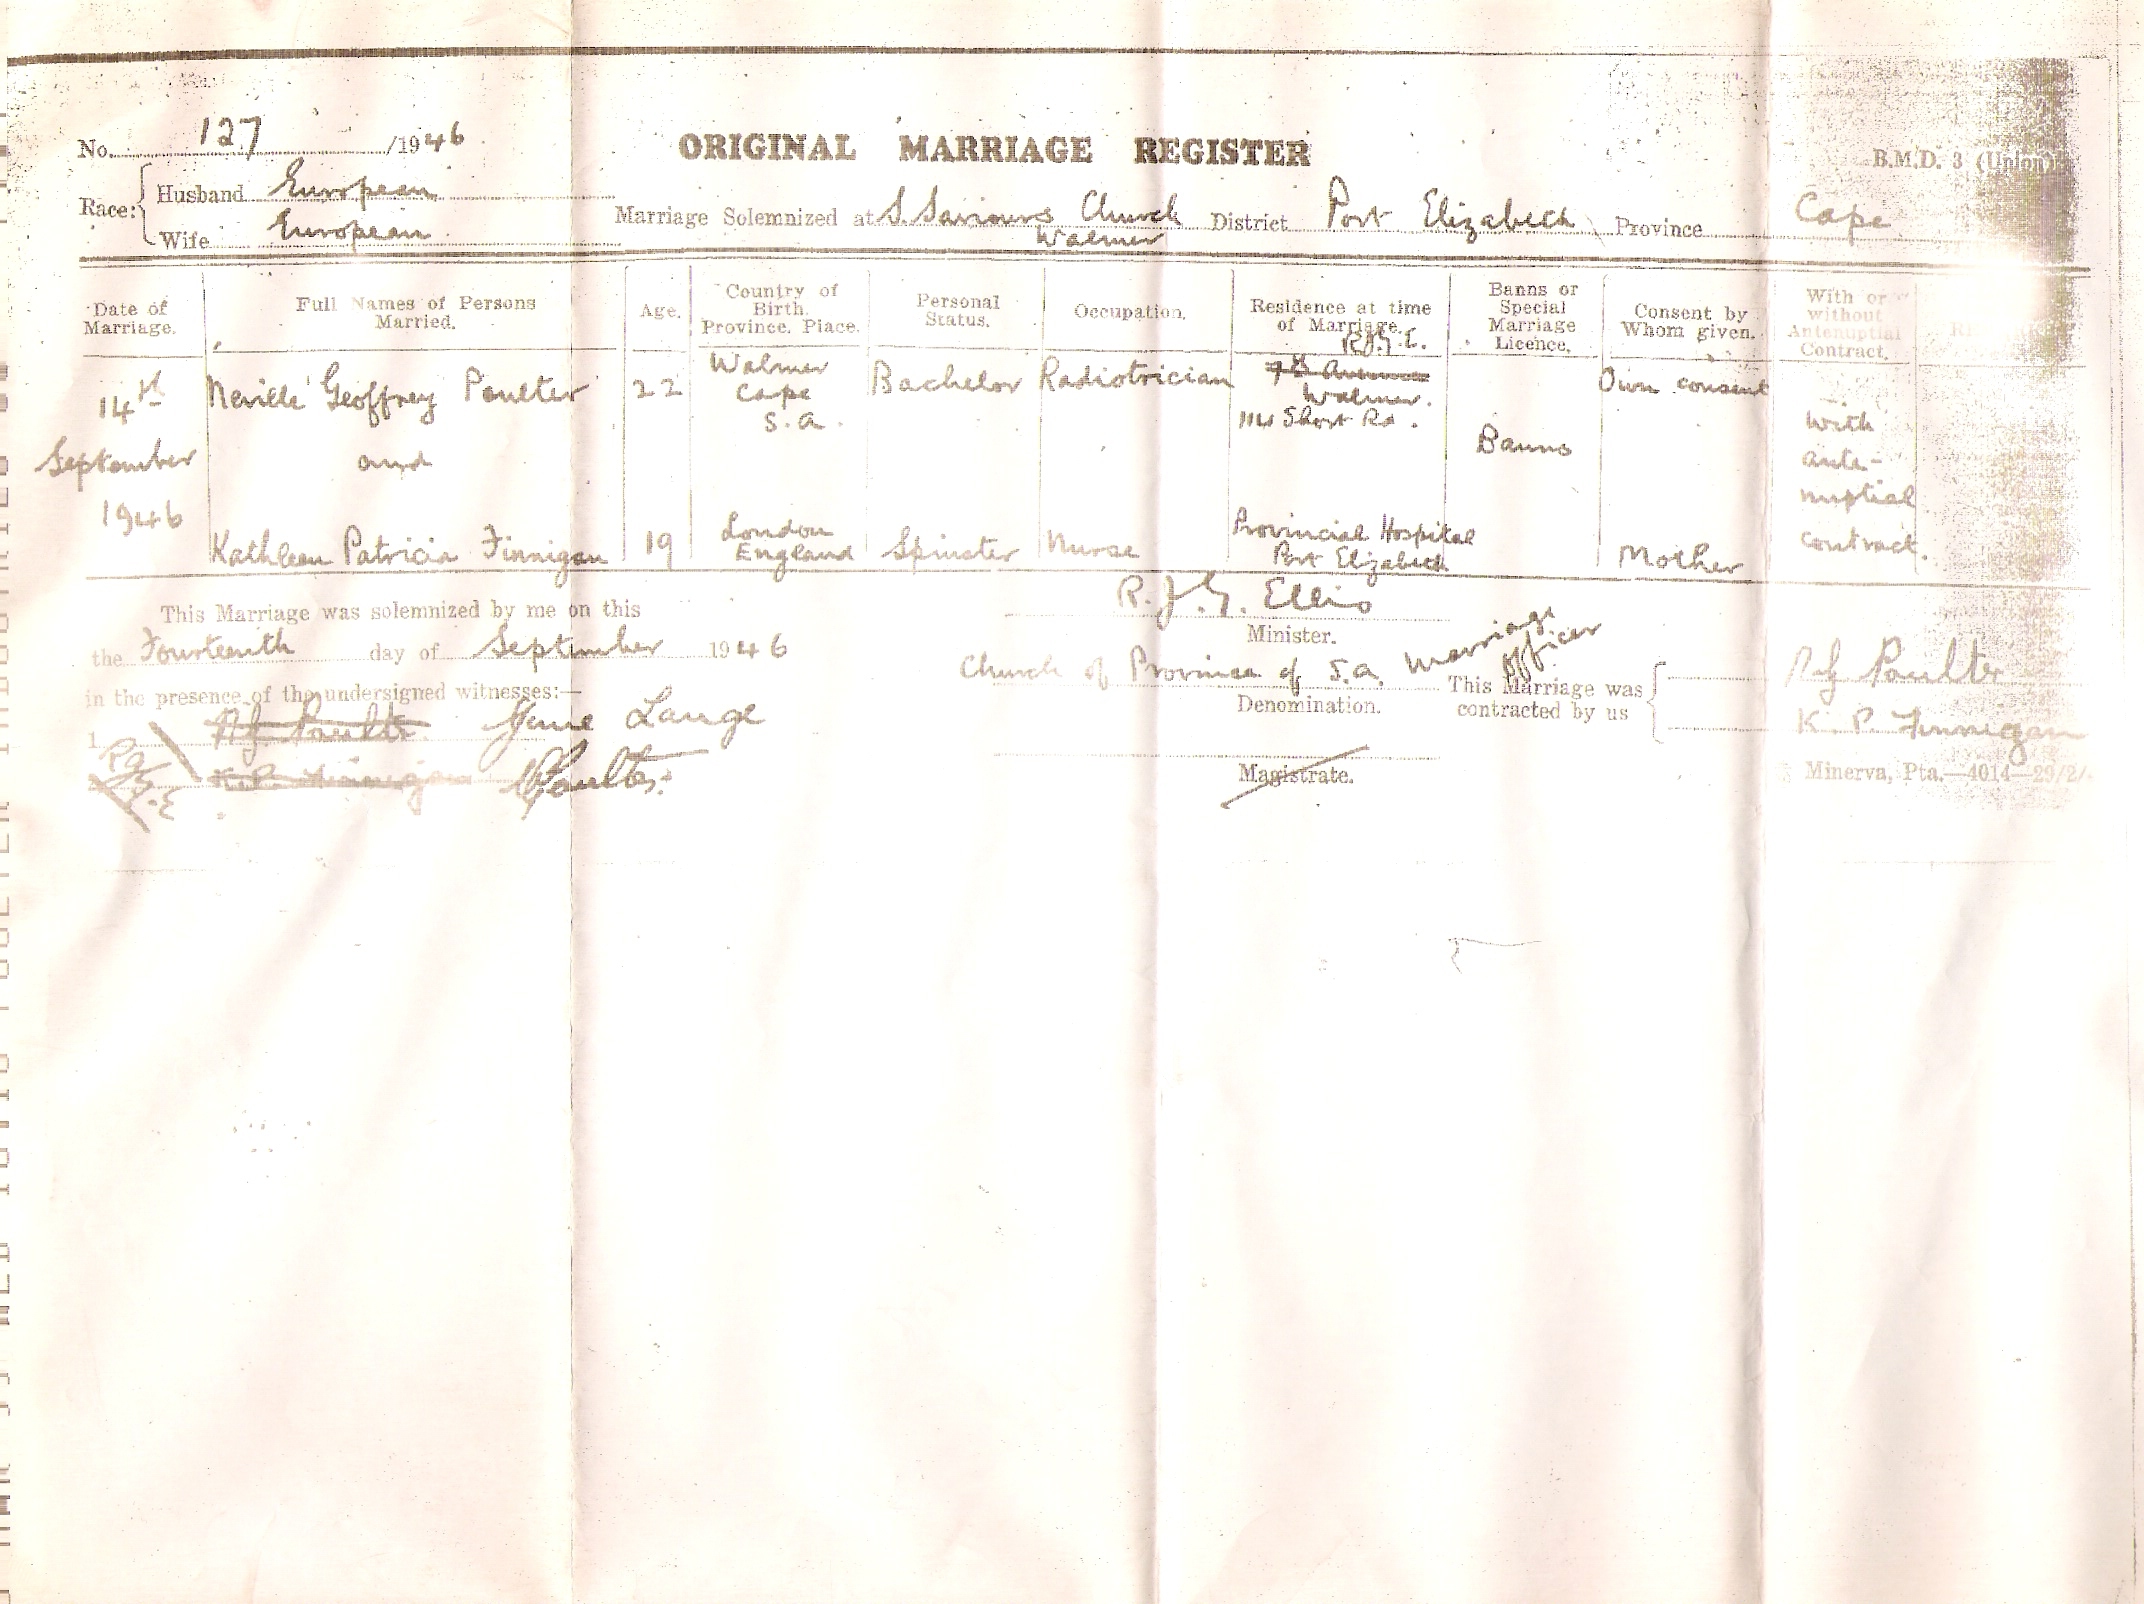 No. 127 /1946
ORIGINAL MARRIAGE REGISTER
B.M.D. 3 (Union)
Race: Husband European
Wife European
Marriage Solemnized at S. Saviours Church Walmer District Port Elizabeth Province Cape
Date of Marriage.
Full Names of Persons Married.
Age.
Country of Birth. Province. Place.
Personal Status.
Occupation.
Residence at time of Marriage.
Banns or Special Marriage Licence.
Consent by Whom given.
With or without Antenuptial Contract.
14th September 1946
Neville Geoffrey Poulter
22
Walmer Cape S.A.
Bachelor
Radiotrician
R.J.G.E.
7th Avenue
Walmer.
Short Rd.
Banns
Own consent
With ante-nuptial contract.
and
Kathleen Patricia Finnigan
19
London England
Spinster
Nurse
Provincial Hospital Port Elizabeth
Mother
This Marriage was solemnized by me on this
the Fourteenth day of September 1946
in the presence of the undersigned witnesses:—
1. N.G. Poulter Lange
2. K.P. Finnigan Poulter
R.J.G. Ellis
Minister.
Church of Province of S.A. Marriage Officer
Denomination.
Magistrate.
This Marriage was contracted by us
N G Poulter
K. P. Finnigan
Minerva, Pta.—4014—29/2/